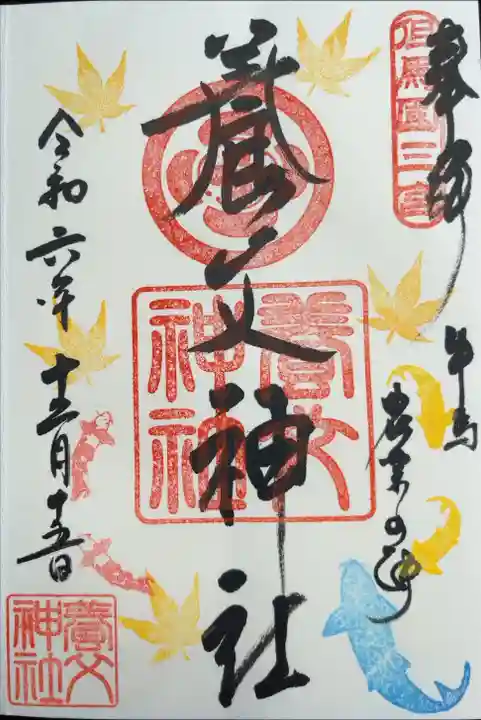 但馬國三宮
奉拝
牛馬
農業の神
養父神社
養父
神社
令和六年 十二月十五日
養父
神社